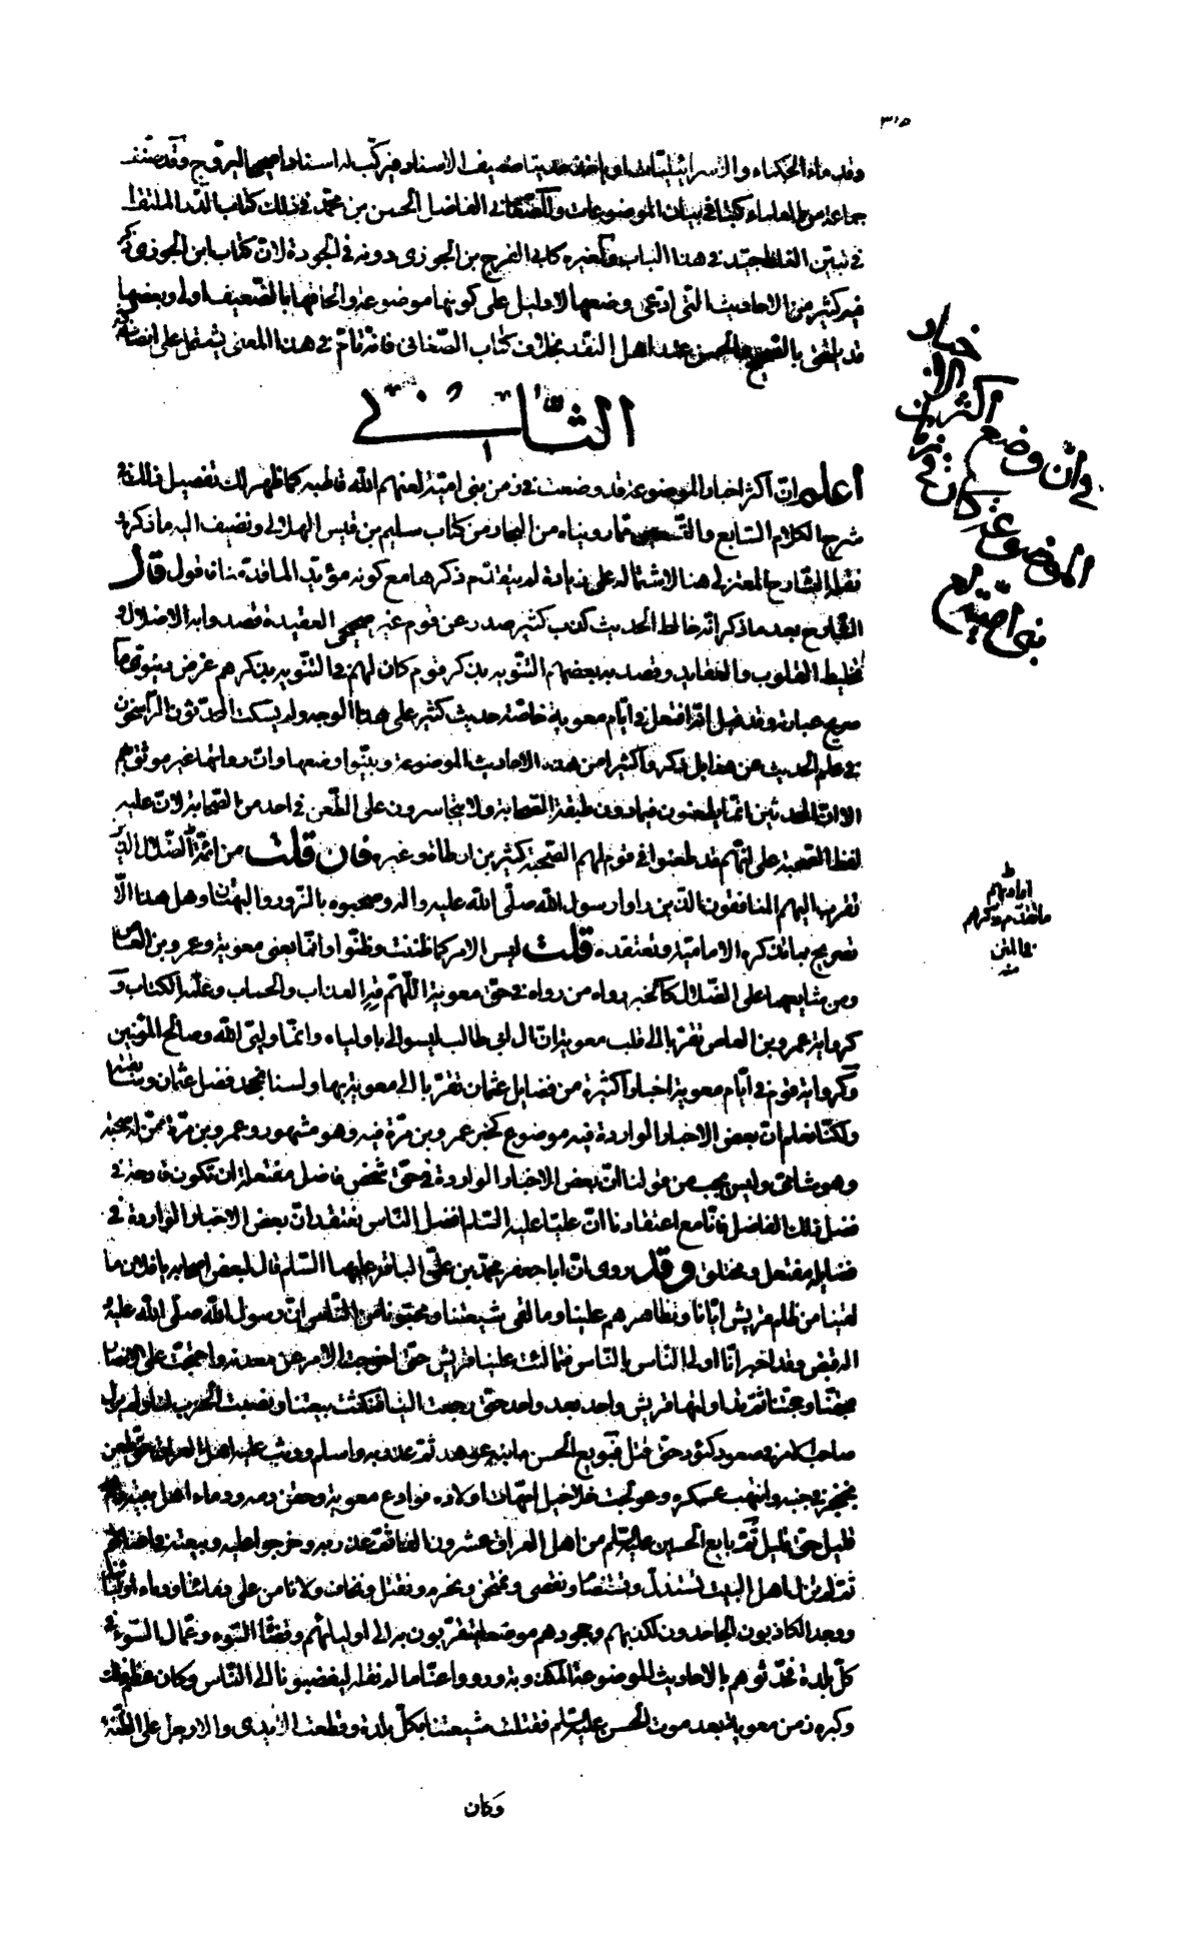 ٣١٥
وقدماء الحكماء والاسرائيليات او ياخذ حديثا ضعيف الاسناد فيركّب له اسنادا صحيحا ليروّج وقد صنّف
جماعة من العلماء كتبا في بيان الموضوعات والصّغاني الفاضل الحسن بن محمّد في ذلك كتاب الدّر الملتقط
في تبيّن الغلط جيّد في هذا الباب ولغيره كابي الفرج بن الجوزي دونه في الجودة لانّ كتاب ابن الجوزي ذكر
فيه كثير من الاحاديث التي ادعى وضعها لا دليل على كونها موضوعة والحاقها بالضّعيف اولى وبعضها
قد يلحق بالصّحيح والحسن عند اهل النقد بخلاف كتاب الصّغاني فانّه تامّ في هذا المعنى يشتمل على انصاف
الثّاني
اعلم انّ اكثر اخبار الموضوعة قد وضعت في زمن بني اميّة لعنهم الله قاطبة كما ظهر لك تفصيل ذلك في
شرح الكلام السّابع والتّسعين ممّا رويناه من البحار من كتاب سليم بن قيس الهلالي ونضيف اليه ما ذكره
نقله الشّارح المعتزلي هنا لاشتماله على زيادة لم يتقدّم ذكرها مع كونه مؤيّدا لما قدّمنا فاقول قال
الشّارح بعد ما ذكر انّه خالط الحديث كذب كثير صدر عن قوم غير صحيحي العقيدة قصدوا به الاضلال و
تخليط القلوب والعقايد وقصد به بعضهم التّنويه بذكر قوم كان لهم في التّنويه بذكرهم غرض دنيوي ما
صريح عبارته وقد قيل انّه افتعل في ايّام معوية خاصّة حديث كثير على هذا الوجه ولم يسكت المحدّثون الرّاسخون
في علم الحديث عن هذا بل ذكروا كثيرا من هذه الاحاديث الموضوعة وبيّنوا وضعها وانّ رواتها غير موثوق بهم
الا انّ المحدثين انّما يطعنون فيما دون طبقة الصّحابة ولا يتجاسرون على الطّعن في احد من الصّحابة لانّ عليه
لفظ الصّحبة على انّهم قد طعنوا في قوم لهم الصّحبة كبسر بن ارطاة وغيره فان قلت من ائمّة الضّلال الذين
تقرب اليهم المنافقون الذين راوا رسول الله صلّى الله عليه وآله وصحبوه بالزّور والبهتان وهل هذا الّا
تصريح بما تذكره الاماميّة وتعتقده قلت ليس الامر كما ظننت وظنّوا وانّما يعني معوية وعمرو بن العاص
ومن شايعهما على الضّلال كالخبر رواه من رواه في حقّ معوية اللّهمّ قه العذاب والحساب وعلّمه الكتاب و
كرواية عمرو بن العاص تقرّبا الى قلب معوية انّ آل ابي طالب ليسوا لي باولياء وانّما وليّي الله وصالح المؤمنين
وكرواية قوم في ايّام معوية اخبارا كثيرة من فضايل عثمان تقرّبا الى معوية بها ولسنا نجحد فضل عثمان وسابقته
ولكنّا نعلم انّ بعض الاخبار الواردة فيه موضوع كخبر عمرو بن مرّة فيه وهو مشهور وعمرو بن مرّة ممّن له صحبة
وهو شامي وليس يجب من قولنا انّ بعض الاخبار الواردة في حقّ شخص فاضل مفتعلة ان تكون قادحة في
فضل ذلك الفاضل فانّا مع اعتقادنا انّ عليّا عليه السّلم افضل النّاس نعتقد انّ بعض الاخبار الواردة في
فضايله مفتعل ومختلق وقد روى انّ ابا جعفر محمّد بن عليّ الباقر عليهما السّلم قال لبعض اصحابه يا فلان ما
لقينا من ظلم قريش ايّانا وتظاهرهم علينا وما لقي شيعتنا ومحبّونا من النّاس انّ رسول الله صلّى الله عليه و
آله قبض وقد اخبر انّا اولى النّاس بالنّاس فتمالئت علينا قريش حتّى اخرجت الامر عن معدنه واحتجّت على الانصار
بحقّنا وحجّتنا ثمّ تداولتها قريش واحد بعد واحد حتّى رجعت الينا فنكثت بيعتنا ونصبت الحرب لنا ولم يزل
صاحب الامر في صعود كئود حتى قتل فبويع الحسن ابنه وعوهد ثمّ غدر به واسلم ووثب عليه اهل العراق حتّى طعن
بخنجر في جنبه وانتهب عسكره وعولجت خلاخيل امّهات اولاده فوادع معوية وحقن دمه ودماء اهل بيته وهم
قليل حقّ قليل ثمّ بايع الحسين عليه السّلم من اهل العراق عشرون الفا ثمّ غدروا به وخرجوا عليه وبيعته في اعناقهم
ثمّ لم نزل اهل البيت نستذلّ ونستضام ونقصى ونمتهن ونحرم ونقتل ونخاف ولا نامن على دمائنا ودماء اوليائنا
ووجد الكاذبون الجاحدون لكذبهم وجحودهم موضعا يتقرّبون به الى اوليائهم وقضاة السّوء وعمّال السّوء في
كلّ بلدة فحدّثوهم بالاحاديث الموضوعة المكذوبة ورووا عنّا ما لم نقله ليبغضونا الى النّاس وكان عظم ذلك
وكبره زمن معوية بعد موت الحسن عليه السّلم فقتلت شيعتنا بكلّ بلدة وقطعت الايدي والارجل على الظّنّة
وكان
في انّ وضع اكثر الاخبار
الموضوعة كان في زمان
بني اميّة
ما تقدّم ذكرهم
في المتن
منه